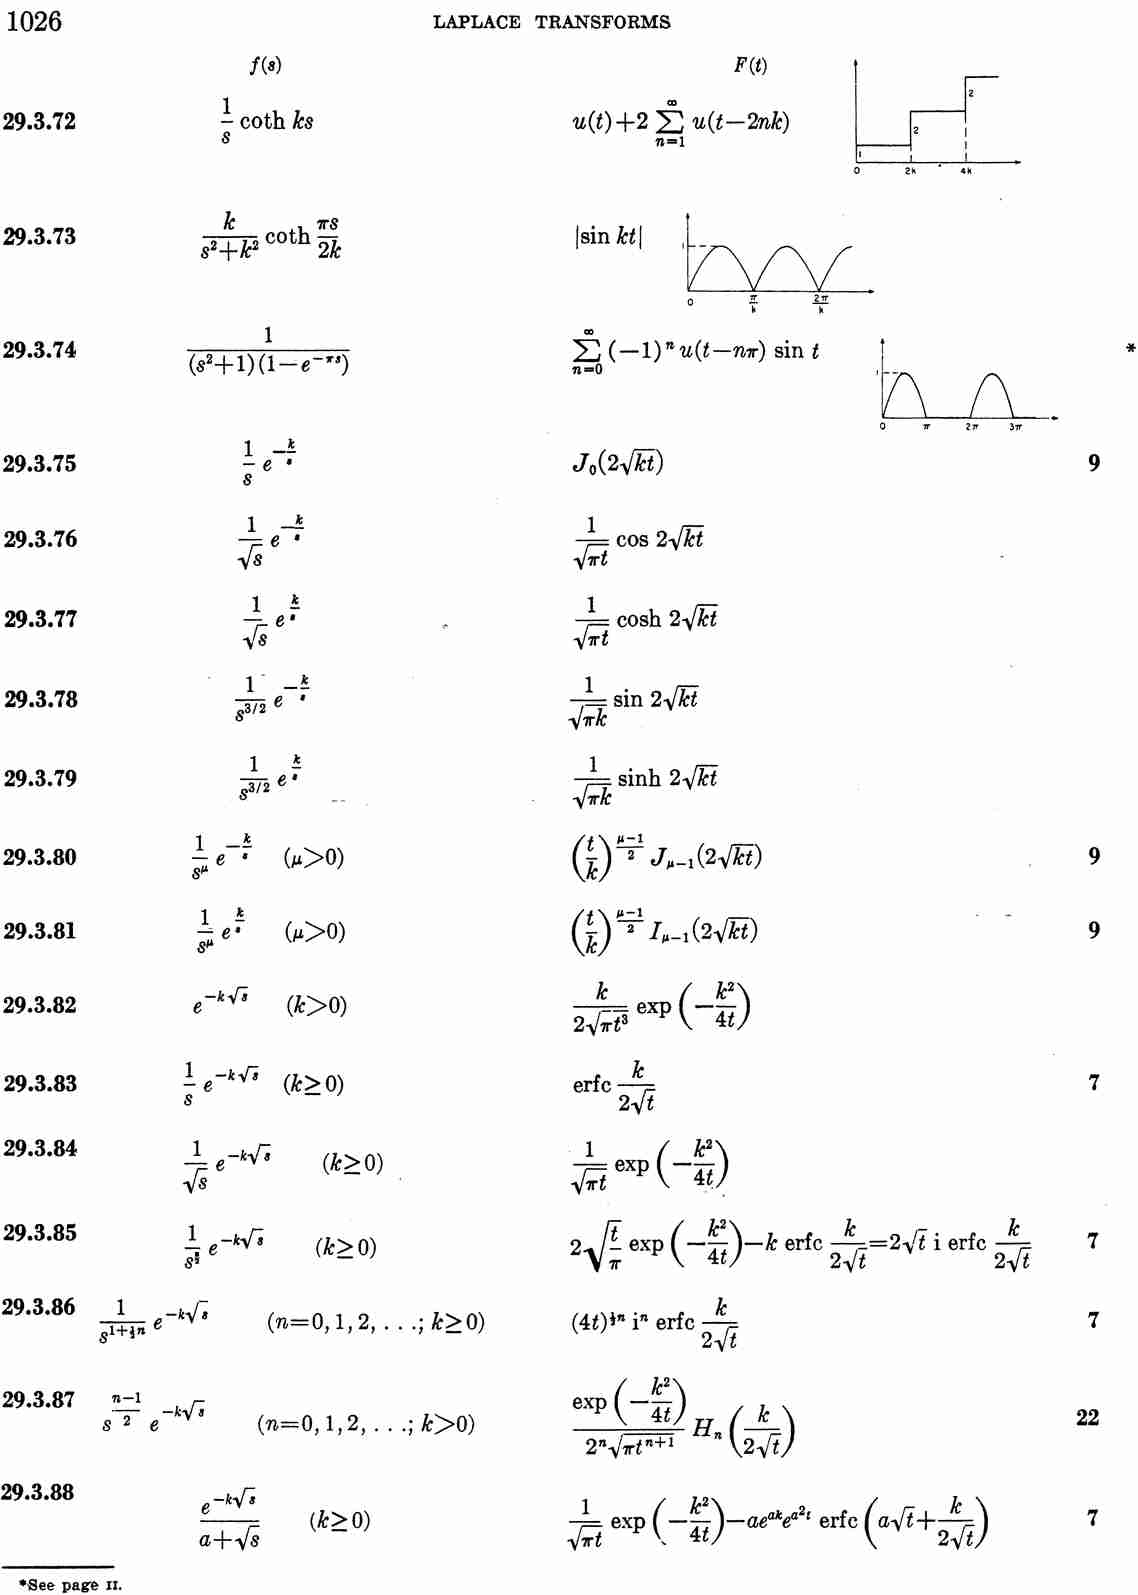 1026 LAPLACE TRANSFORMS
f(s) F(t)
29.3.72 1/s coth ks u(t)+2 ∑_{n=1}^{∞} u(t−2nk) 1 2 2 0 2k 4k
29.3.73 k/(s²+k²) coth πs/2k |sin kt| 1 0 π/k 2π/k
29.3.74 1/((s²+1)(1−e^{−πs})) ∑_{n=0}^{∞} (−1)ⁿ u(t−nπ) sin t 1 0 π 2π 3π *
29.3.75 1/s e^{−k/s} J₀(2√(kt)) 9
29.3.76 1/√s e^{−k/s} 1/√(πt) cos 2√(kt)
29.3.77 1/√s e^{k/s} 1/√(πt) cosh 2√(kt)
29.3.78 1/s^{3/2} e^{−k/s} 1/√(πk) sin 2√(kt)
29.3.79 1/s^{3/2} e^{k/s} 1/√(πk) sinh 2√(kt)
29.3.80 1/s^μ e^{−k/s} (μ>0) (t/k)^{(μ−1)/2} J_{μ−1}(2√(kt)) 9
29.3.81 1/s^μ e^{k/s} (μ>0) (t/k)^{(μ−1)/2} I_{μ−1}(2√(kt)) 9
29.3.82 e^{−k√s} (k>0) k/(2√(πt³)) exp (−k²/4t)
29.3.83 1/s e^{−k√s} (k≥0) erfc k/(2√t) 7
29.3.84 1/√s e^{−k√s} (k≥0) 1/√(πt) exp (−k²/4t)
29.3.85 1/s^{3/2} e^{−k√s} (k≥0) 2√(t/π) exp (−k²/4t)−k erfc k/(2√t)=2√t i erfc k/(2√t) 7
29.3.86 1/s^{1+½n} e^{−k√s} (n=0, 1, 2, . . .; k≥0) (4t)^{½n} iⁿ erfc k/(2√t) 7
29.3.87 s^{(n−1)/2} e^{−k√s} (n=0, 1, 2, . . .; k>0) exp (−k²/4t)/(2ⁿ√(πt^{n+1})) Hₙ (k/(2√t)) 22
29.3.88 e^{−k√s}/(a+√s) (k≥0) 1/√(πt) exp (−k²/4t)−ae^{ak}e^{a²t} erfc (a√t+k/(2√t)) 7
*See page II.